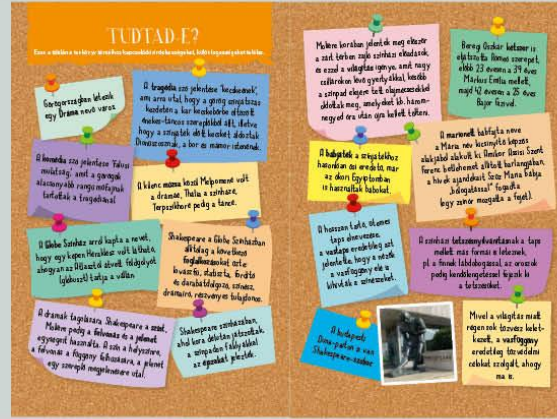 TUDTAD-E?
Görögországban létezik
egy Dráma nevű város.
A tragédia szó jelentése "kecskeének",
ami arra utal, hogy a görög színjátszás
kezdetén a kar kecskebőrbe öltözött
énekes-táncos szereplőkből állt, illetve,
hogy a színjáték előtt kecskét áldoztak
Dionüszosznak, a bor és mámor istenének.
A komédia szó jelentése "falusi
mulatság", amit a görögök
alacsonyabb rangú műfajnak
tartottak a tragédiánál.
A kilenc múzsa közül Melpomené volt
a drámáé, Thália a színházé,
Terpszikhoré pedig a táncé.
A Globe Színház arról kapta a nevét,
hogy egy képen Héraklész volt látható,
ahogyan az Atlasztól átvett földgolyót
(glóbuszt) tartja a vállán.
Shakespeare a Globe Színházban
állítólag a következő
foglalkozásokat űzte:
lovászfiú, statiszta, fordító
és darabátdolgozó, színész,
drámaíró, részvényes tulajdonos.
A drámák tagolására Shakespeare a színt,
Molière pedig a felvonás és a jelenet
egységét használta. A szín a helyszínre,
a felvonás a függöny felhúzására, a jelenet
egy szereplő megjelenésére utal.
Shakespeare színházában,
ahol kora délután játszottak,
a színpadon fáklyákkal
az éjszakát jelezték.
Molière korában jelentek meg először
a zárt térben zajló színházi előadások,
és ezzel a világítás igénye, amit nagy
csillárokon lévő gyertyákkal, később
a színpad elejére tett olajmécsesekkel
oldottak meg, amelyeket kb. három-
negyed óra után újra kellett tölteni.
Beregi Oszkár kétszer is
eljátszotta Rómeó szerepét,
előbb 23 évesen a 39 éves
Márkus Emília mellett,
majd 42 évesen a 25 éves
Bajor Gizivel.
A bábjáték a színjátékhoz
hasonlóan ősi eredetű, már
az ókori Egyiptomban
is használtak bábokat.
A marionett bábfajta neve
a Mária név kicsinyítő képzős
alakjából alakult ki. Amikor Assisi Szent
Ferenc betlehemet állított barlangjában,
a hívek ajándékait Szűz Mária bábja
"bólogatással" fogadta
(egy zsinór mozgatta a fejét).
A hosszan tartó, ütemes
taps elnevezése,
a vastaps eredetileg azt
jelentette, hogy a nézők
a vasfüggöny elé is
kihívták a színészeket.
A színházi tetszésnyilvánításnak a taps
mellett más formái is léteznek,
pl. a finnek lábdobogással, az oroszok
pedig kendőlengetéssel fejezik ki
a tetszésüket.
A budapesti
Duna-parton is van
Shakespeare-szobor.
Mivel a világítás miatt
régen sok tűzvész kelet-
kezett, a vasfüggöny
eredetileg tűzvédelmi
célokat szolgált, ahogy
ma is.